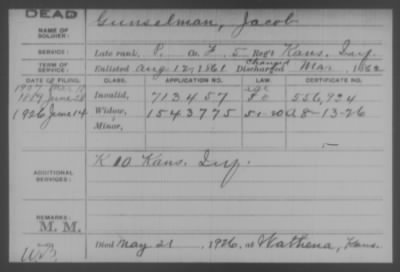 DEAD
NAME OF SOLDIER: Gunselman, Jacob
SERVICE: Late rank, P. Co. F, 5 Reg't Kans. Inf.
TERM OF SERVICE: Enlisted Aug 12, 1861 Changed Discharged Mar., 1862
DATE OF FILING. CLASS. APPLICATION NO. LAW. CERTIFICATE NO.
1907 age
1889 June 28 Invalid, 713457 556,934
1926 June 14 Widow, 1543775 A 8-13-26
Minor,
ADDITIONAL SERVICES: K 10 Kans. Inf.
REMARKS:
M. M.
Died May 21, 1926, at Wathena, Kans.